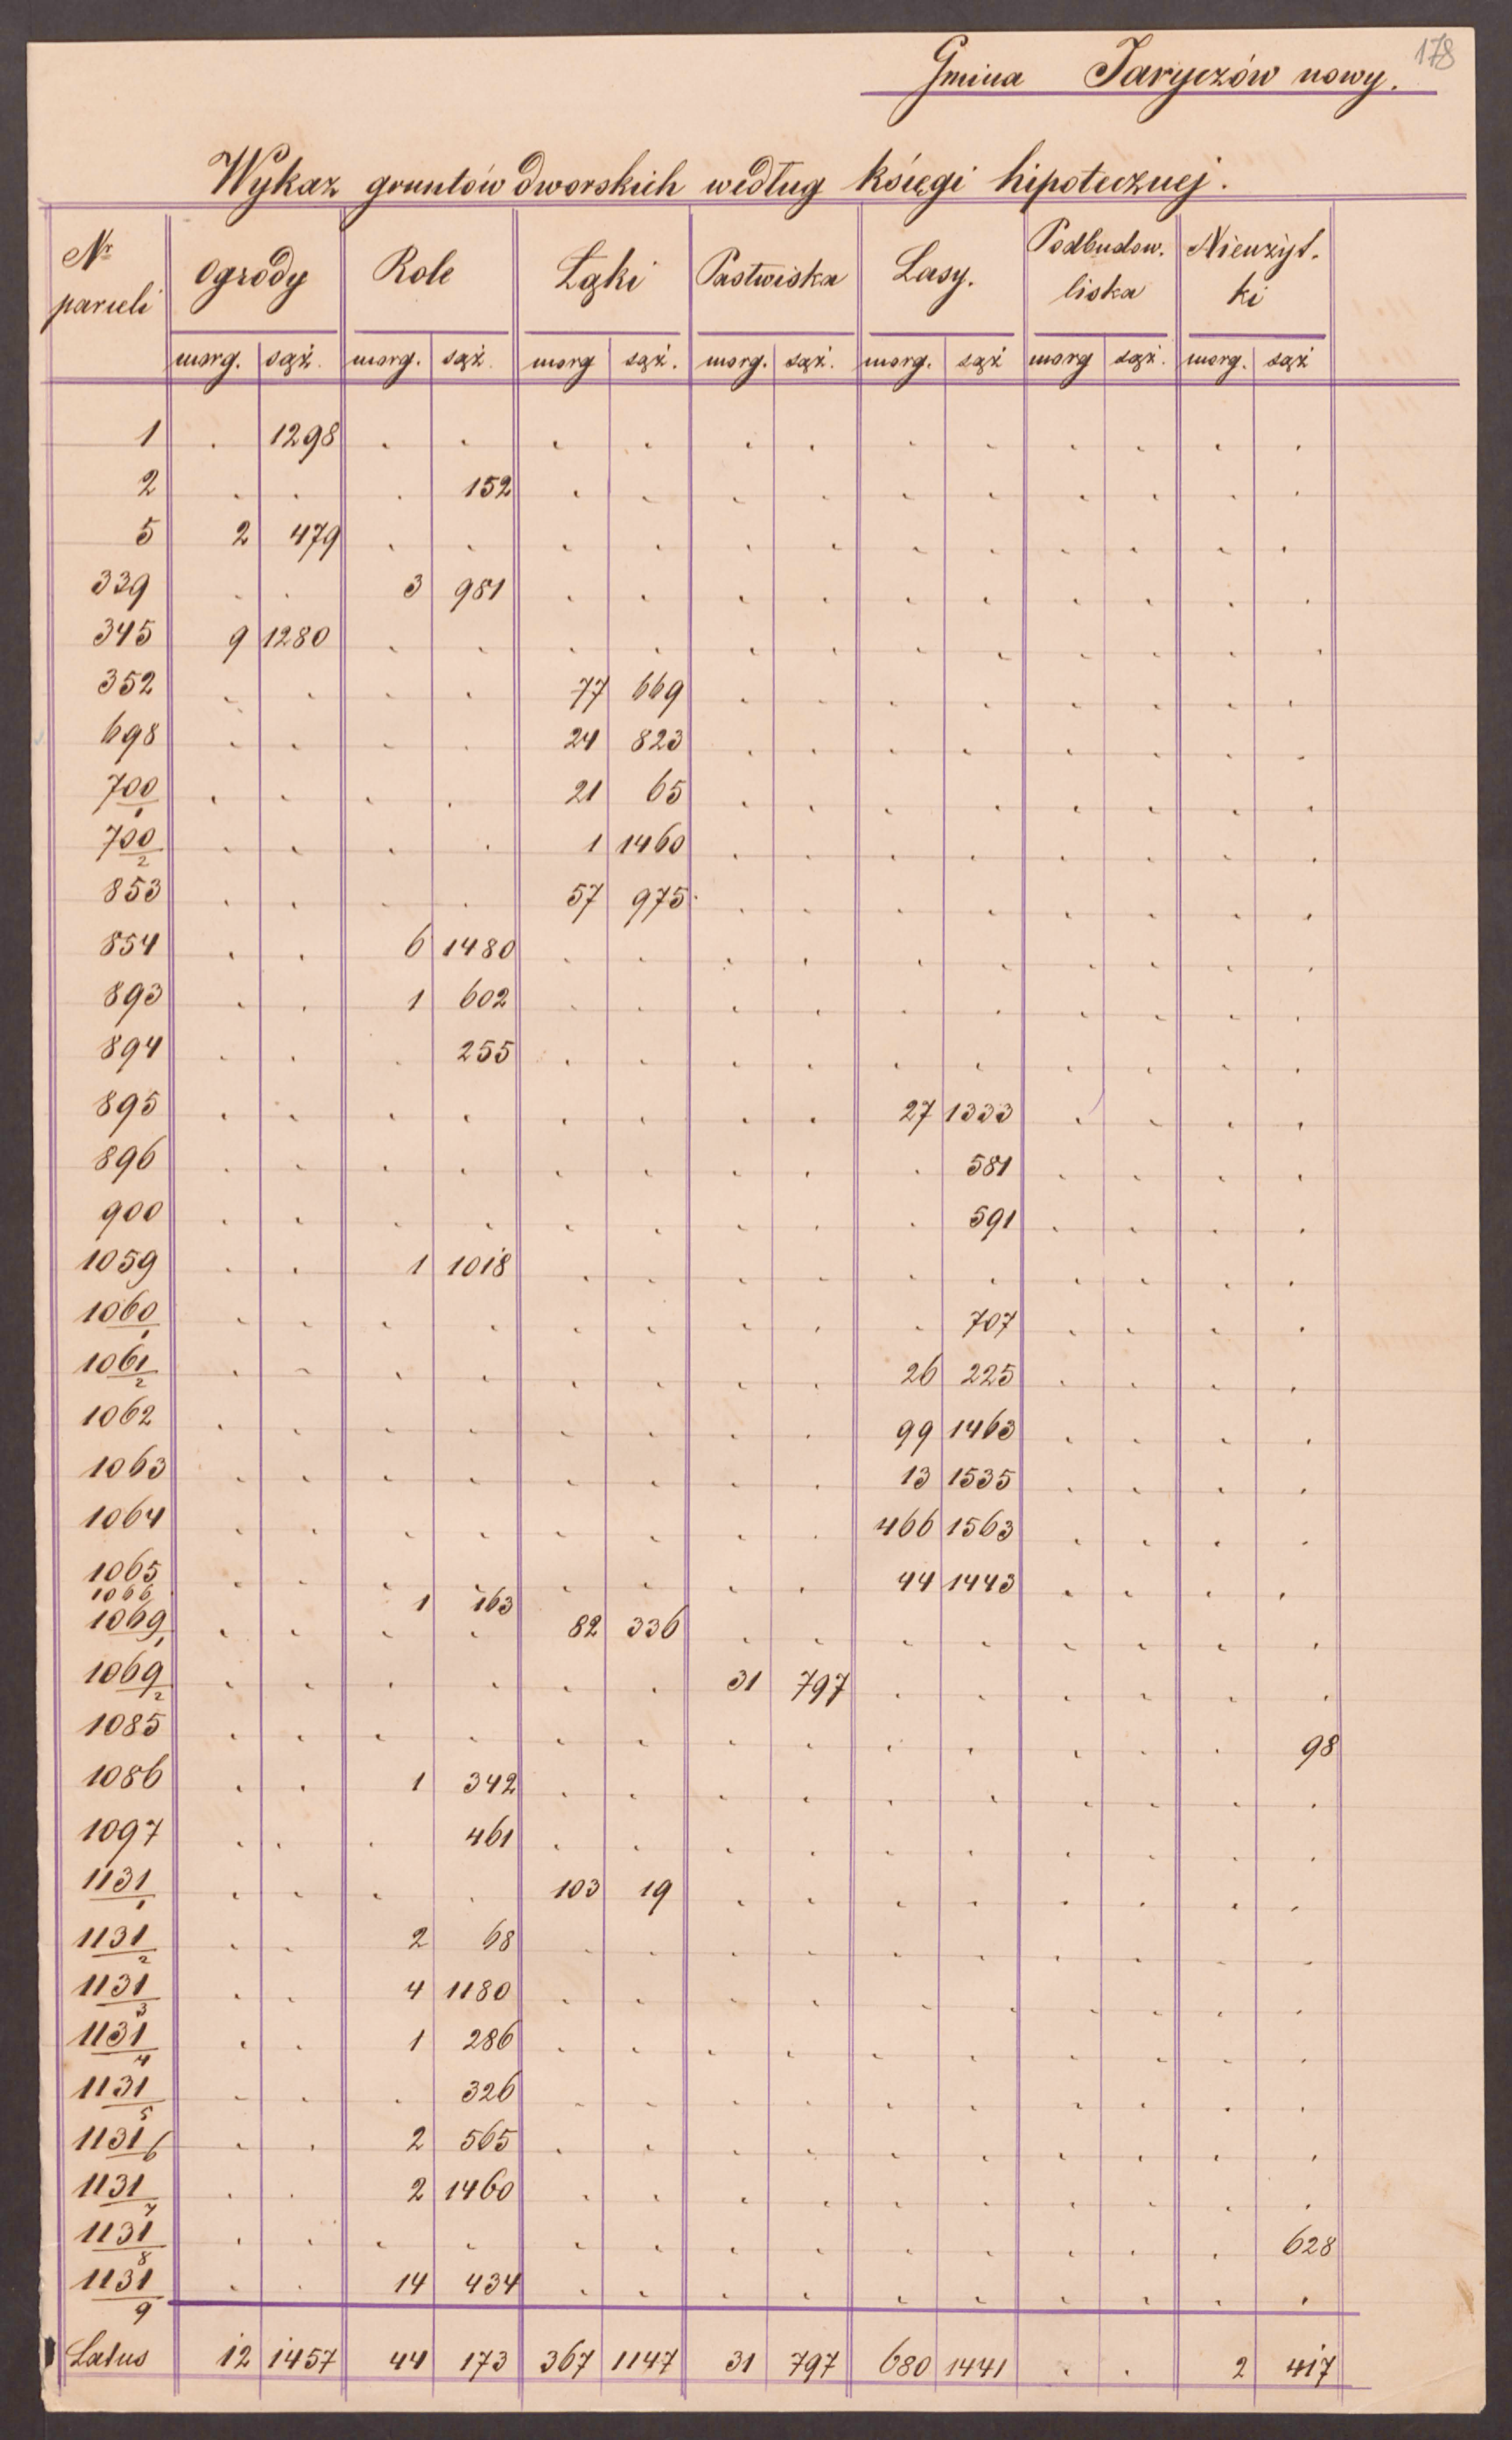 178
Gmina Jaryczów nowy.
Wykaz gruntów dworskich według księgi hipotecznej.
Nr parceli Ogrody Role Łąki Pastwiska Lasy. Podbudow. liska Nieużyt. ki
morg. sąż. morg. sąż. morg sąż. morg. sąż. morg. sąż morg sąż. morg. sąż
1 . 1298 . . . . . . . . . . . .
2 . . . 152 . . . . . . . . . .
5 2 479 . . . . . . . . . . . .
339 . . 3 981 . . . . . . . . . .
345 9 1280 . . . . . . . . . . . .
352 . . . . 77 669 . . . . . . . .
698 . . . . 24 823 . . . . . . . .
700/1 . . . . 21 65 . . . . . . . .
700/2 . . . . 1 1460 . . . . . . . .
853 . . . . 57 975 . . . . . . . .
854 . . 6 1480 . . . . . . . . . .
893 . . 1 602 . . . . . . . . . .
894 . . . 255 . . . . . . . . . .
895 . . . . . . . . 27 1333 . . . .
896 . . . . . . . . . 581 . . . .
900 . . . . . . . . . 591 . . . .
1059 . . 1 1018 . . . . . . . . . .
1060/1 . . . . . . . . . 707 . . . .
1061/2 . . . . . . . . 26 225 . . . .
1062 . . . . . . . . 99 1463 . . . .
1063 . . . . . . . . 13 1535 . . . .
1064 . . . . . . . . 466 1563 . . . .
1065 . . . . . . . . 44 1443 . . . .
1066 1 163
1069/1 . . . . 82 336 . . . . . . . .
1069/2 . . . . . . 31 797 . . . . . .
1085 . . . . . . . . . . . . . 98
1086 . . 1 342 . . . . . . . . . .
1097 . . . 461 . . . . . . . . . .
1131/1 . . . . 103 19 . . . . . . . .
1131/2 . . 2 68 . . . . . . . . . .
1131/3 . . 4 1180 . . . . . . . . . .
1131/4 . . 1 286 . . . . . . . . . .
1131/5 . . . 326 . . . . . . . . . .
1131/6 . . 2 565 . . . . . . . . . .
1131/7 . . 2 1460 . . . . . . . . . .
1131/8 . . . . . . . . . . . . . 628
1131/9 . . 14 434 . . . . . . . . . .
Latus 12 1457 44 173 367 1147 31 797 680 1441 . . 2 417